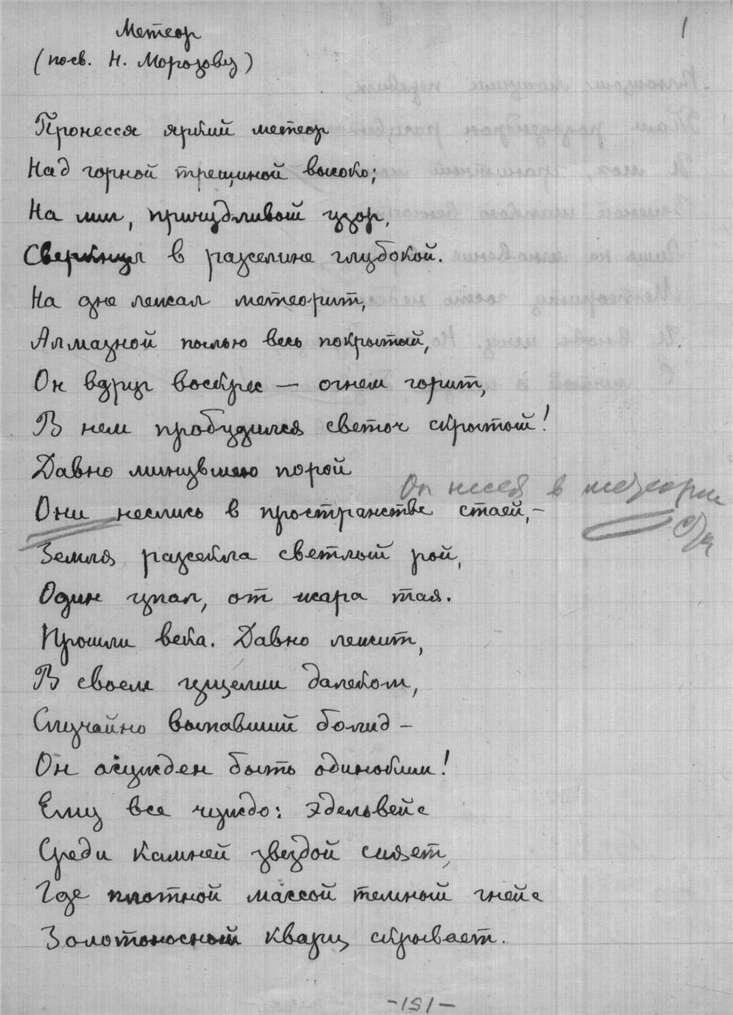 1
Метеор
(посв. Н. Морозову)
Пронесся яркий метеор
Над горной трещиной высоко;
На миг, причудливой узор,
Сверкнул в разселине глубокой.
На дне лежал метеорит,
Алмазной пылью весь покрытый,
Он вдруг воскрес — огнем горит,
В нем пробудился светоч скрытый!
Давно минувшею порой
Он несся в метеорной
Они неслись в пространстве стаей,–
Земля разсекла светлый рой,
Один упал, от жара тая.
Прошли века. Давно лежит,
В своем ущелии далеком,
Случайно выпавший болид –
Он осужден быть одиноким!
Ему все чуждо: эдельвейс
Среди камней звездой сияет,
Где плотной массой темный гнейс
Золотоносный кварц скрывает.
-151-